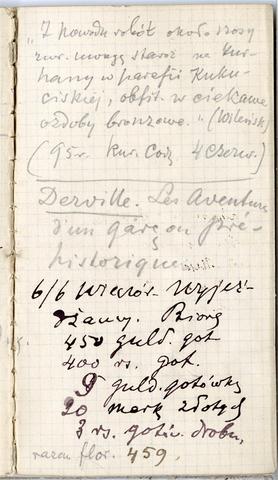 "Z powodu robót około szosy
zwr. uwagę staroż. na kur-
hany w parafii Kuku-
ciskiej, obfit. w ciekawe
ozdoby bronzowe." (Wileńsk)
(95 r. Kur. Codz. 4 czerw.)
Derville. Les Aventure
d'un garçon pré-
historique
6/6 wieczór. Wyjeż-
dżamy. Biorę
450 guld. got
400 rs. got.
9 guld. gotówką
20 marek złotych
3 rs. gotów. drobn.
razem flor. 459.